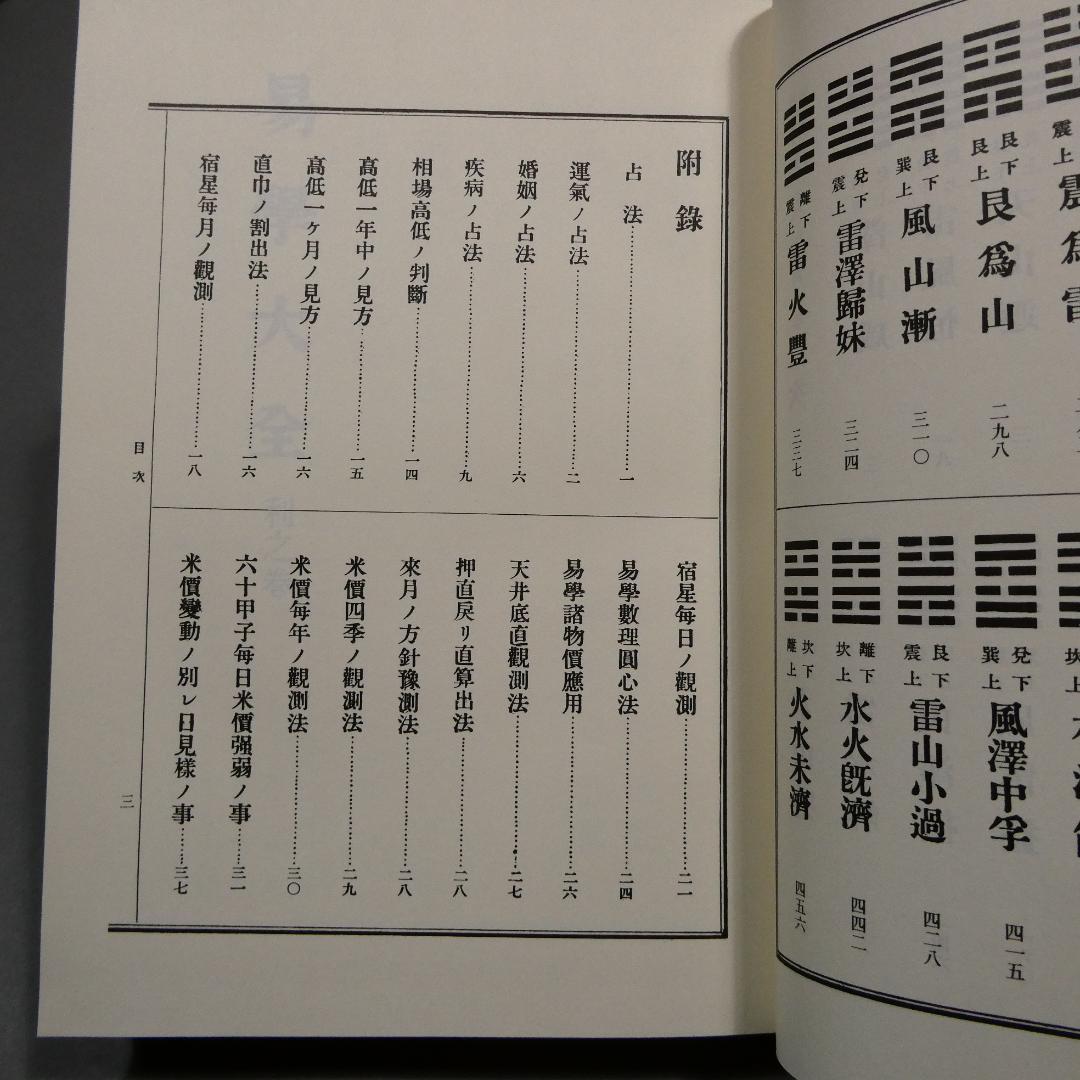 震上
震爲雷
艮下
艮上
艮爲山
二九八
艮下
巽上
風山漸
三一〇
兌下
震上
雷澤歸妹
三二四
離下
震上
雷火豐
三三七
坎
兌下
巽上
風澤中孚
四一五
艮下
震上
雷山小過
四二八
離下
坎上
水火既濟
四四二
坎下
離上
火水未濟
四五六
附錄
占法……一
運氣ノ占法……二
婚姻ノ占法……六
疾病ノ占法……九
相場高低ノ判斷……一四
高低一年中ノ見方……一五
高低一ヶ月ノ見方……一六
直巾ノ割出法……一六
宿星每月ノ觀測……一八
宿星每日ノ觀測……二一
易學數理圓心法……二四
易學諸物價應用……二六
天井底直觀測法……二七
押直戾リ直算出法……二八
來月ノ方針豫測法……二八
米價四季ノ觀測法……二九
米價每年ノ觀測法……三〇
六十甲子每日米價强弱ノ事……三一
米價變動ノ別レ日見樣ノ事……三七
目次
三
易學大全